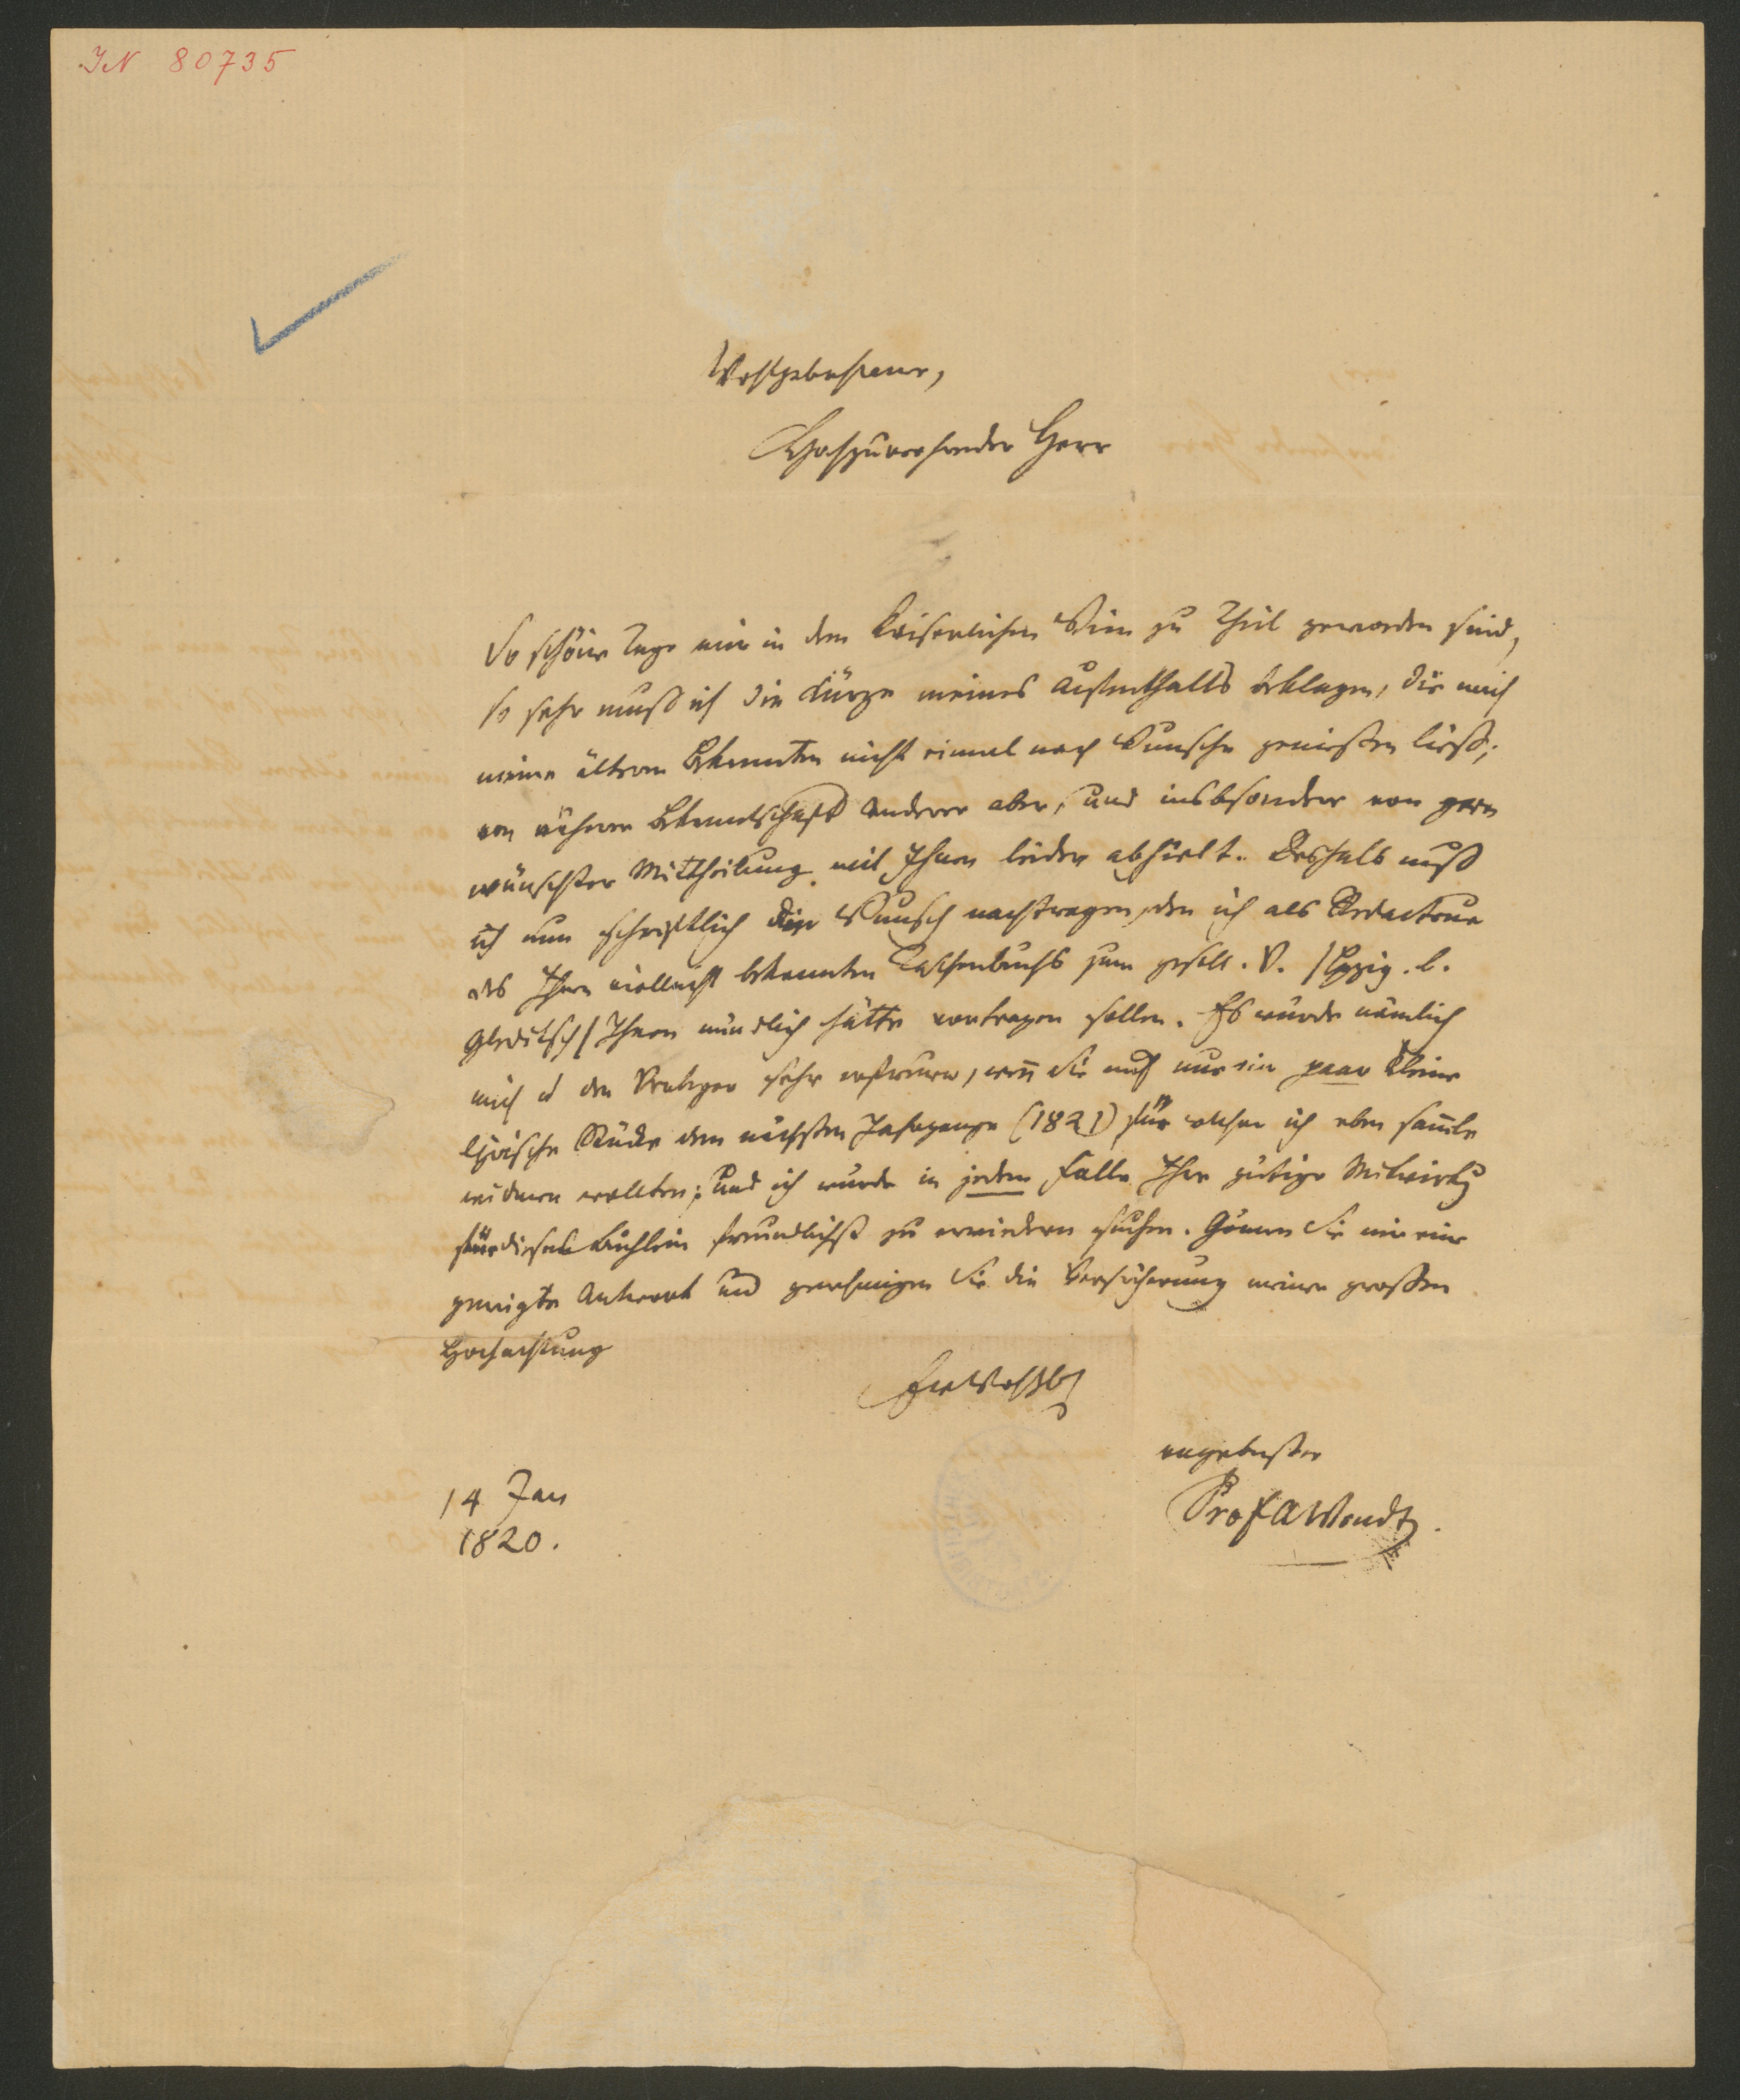 IN 80735
Wohlgebohrner,
Hochzuverehrender Herr
So schöne Tage mir in dem kaiserlichen Wien zu Theil geworden sind,
so sehr muß ich die Kürze meines Aufenthalts beklagen, die mich
meine ältern Bekannten nicht einmal nach Wunsche genießen ließ;
von näherer Bekanntschaft anderer aber, und insbesondere von gern
wünschter Mittheilung mit Ihnen leider abhielt. Deshalb muß
ich nun schriftlich den Wunsch nachtragen, den ich als Redacteur
des Ihnen vielleicht bekannten Taschenbuchs zum gesell. V. /Lpzig. b.
Gleditsch/ Ihnen mündlich hätte vortragen sollen. Es würde nämlich
mich u den Verleger sehr erfreuen, wenn Sie auch nur ein paar kleine
lyrische Stücke dem nächsten Jahrgange (1821) für welchen ich eben sammle
widmen wollten; und ich würde in jedem Falle Ihre gütige Mitwirkg
für dieses Büchlein freundlichst zu erwiedern suchen. Gönnen Sie mir eine
geneigte Antwort und genehmigen Sie die Versicherung meiner großen
Hochachtung
Ew Wohlgb
ergebenster
14 Jan
Prof A Wendt.
1820.